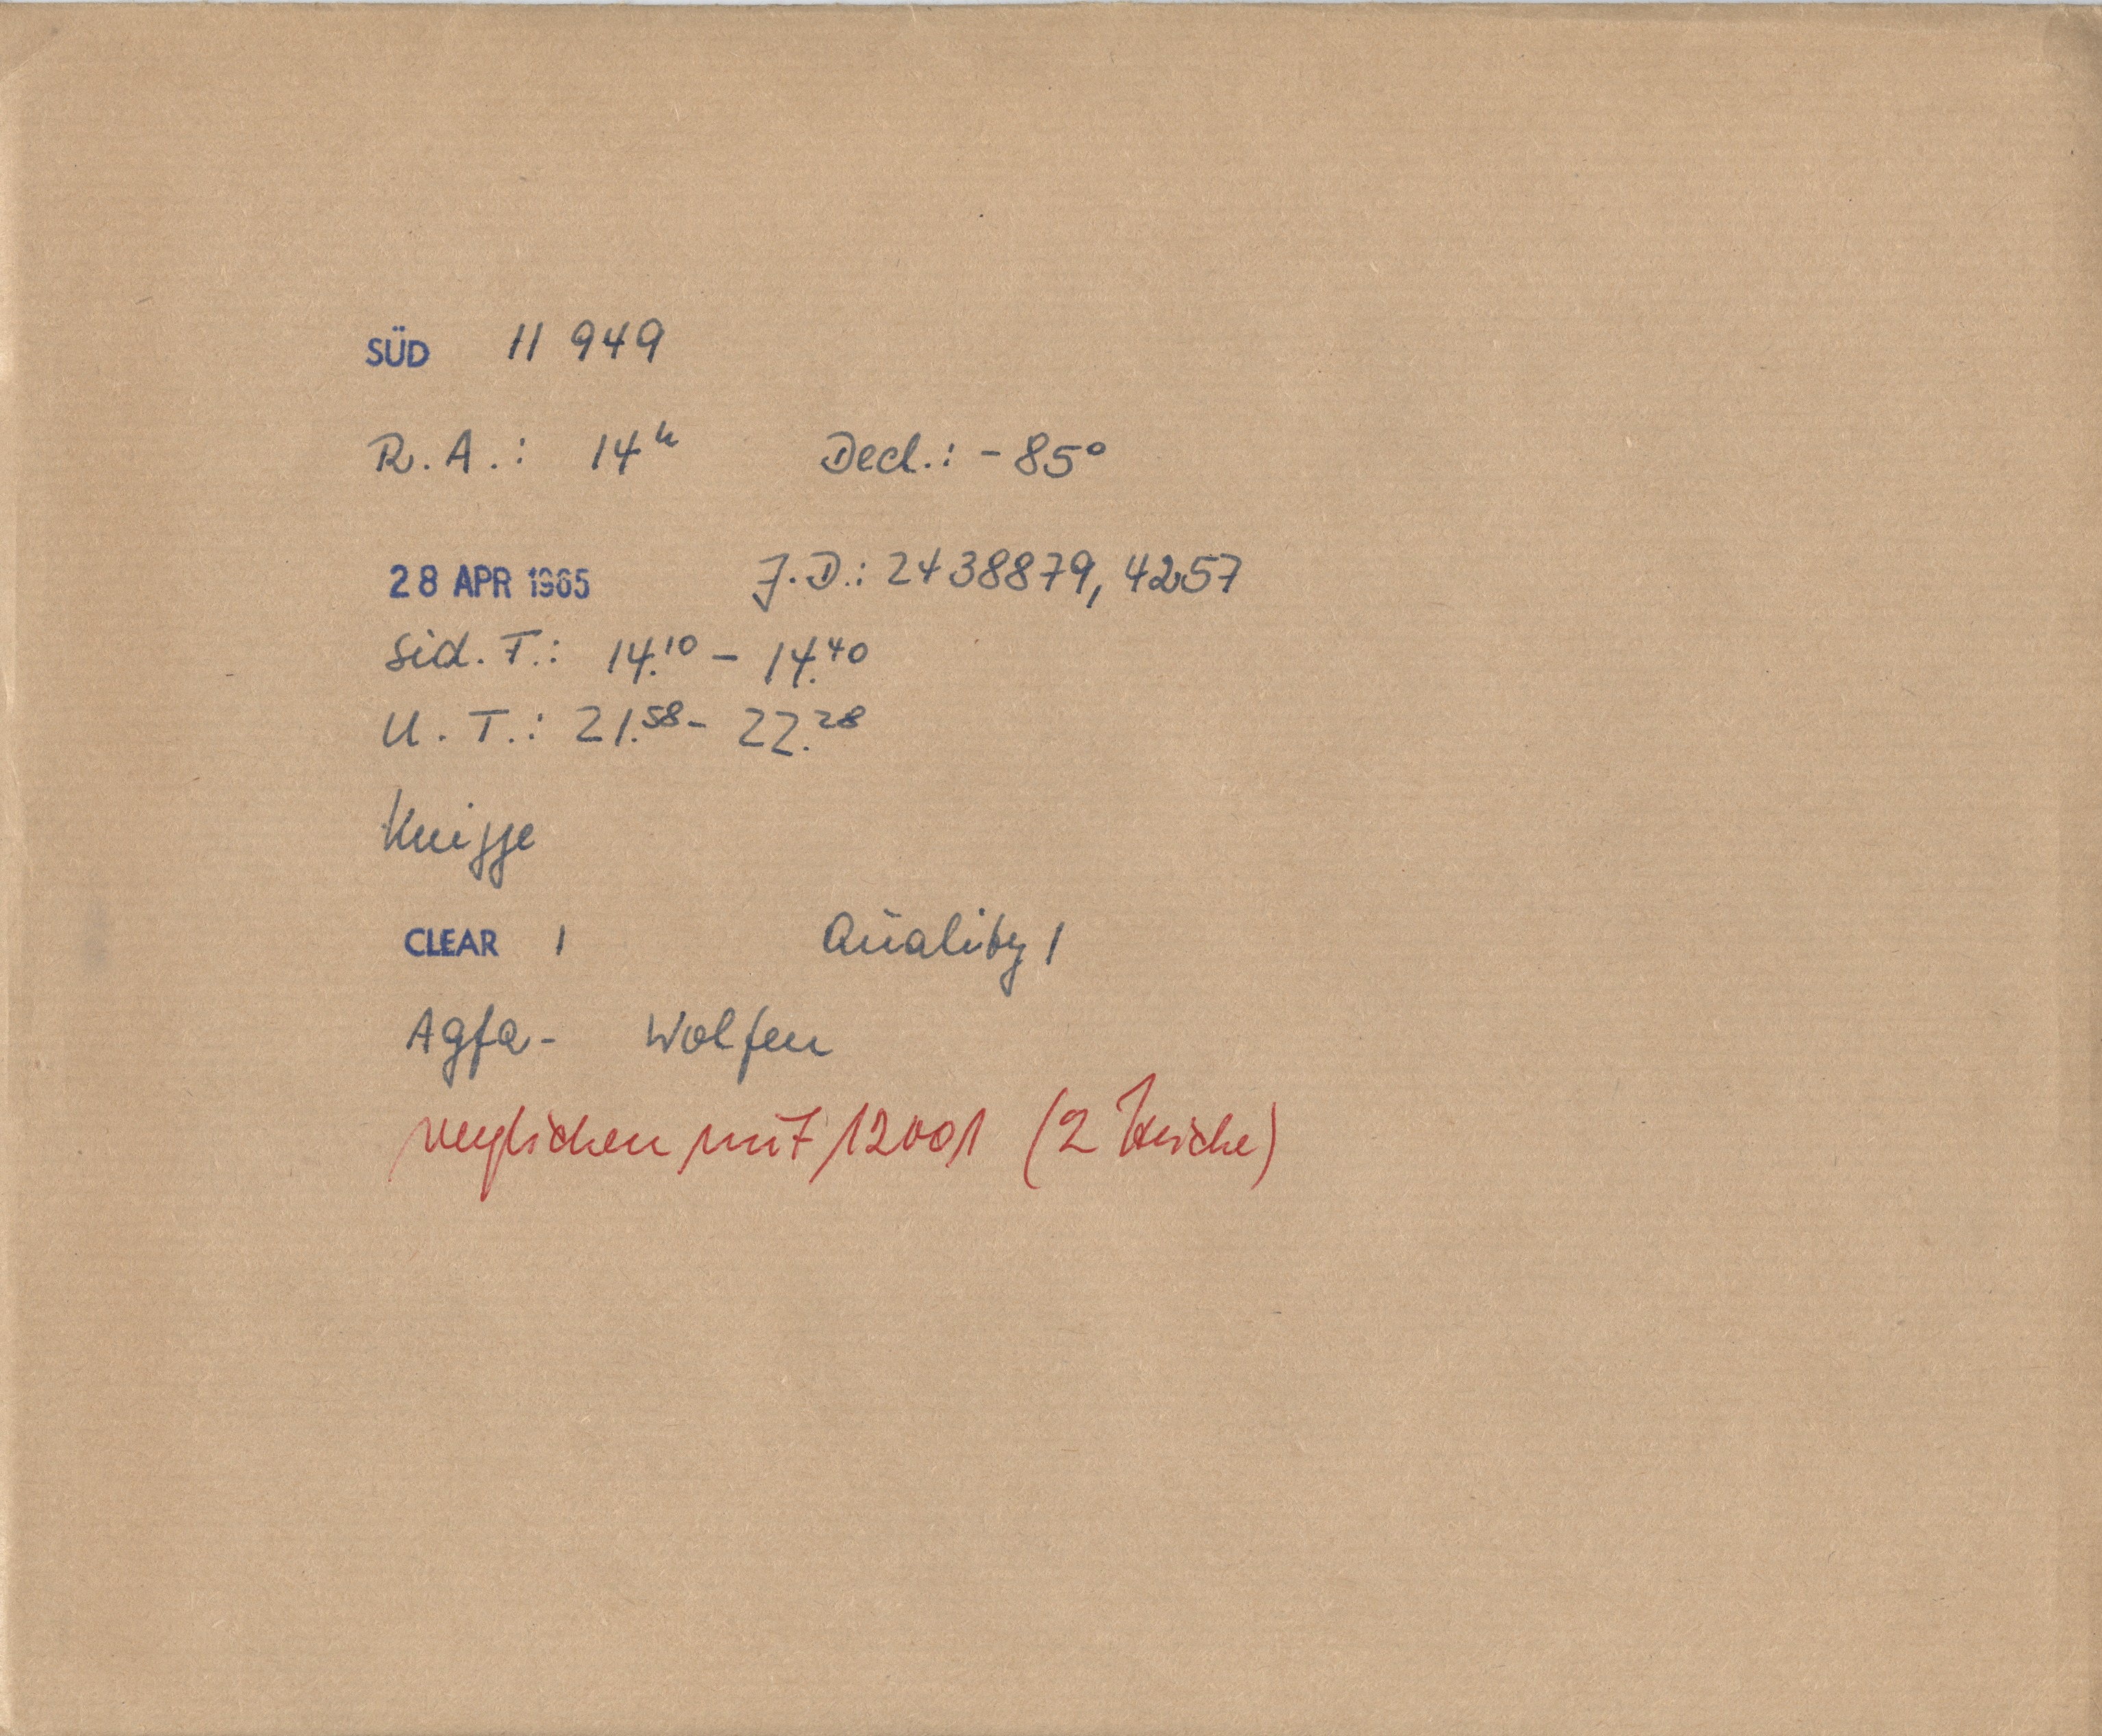 SÜD 11 949
R. A.: 14ʰ Decl.: -85°
28 APR 1965 J.D.: 2438879, 4257
Sid. T.: 14.¹⁰ - 14.⁴⁰
U. T.: 21.⁵⁸ - 22.²⁸
Knigge
CLEAR 1 Quality 1
Agfa- Wolfen
verglichen mit 12001 (2